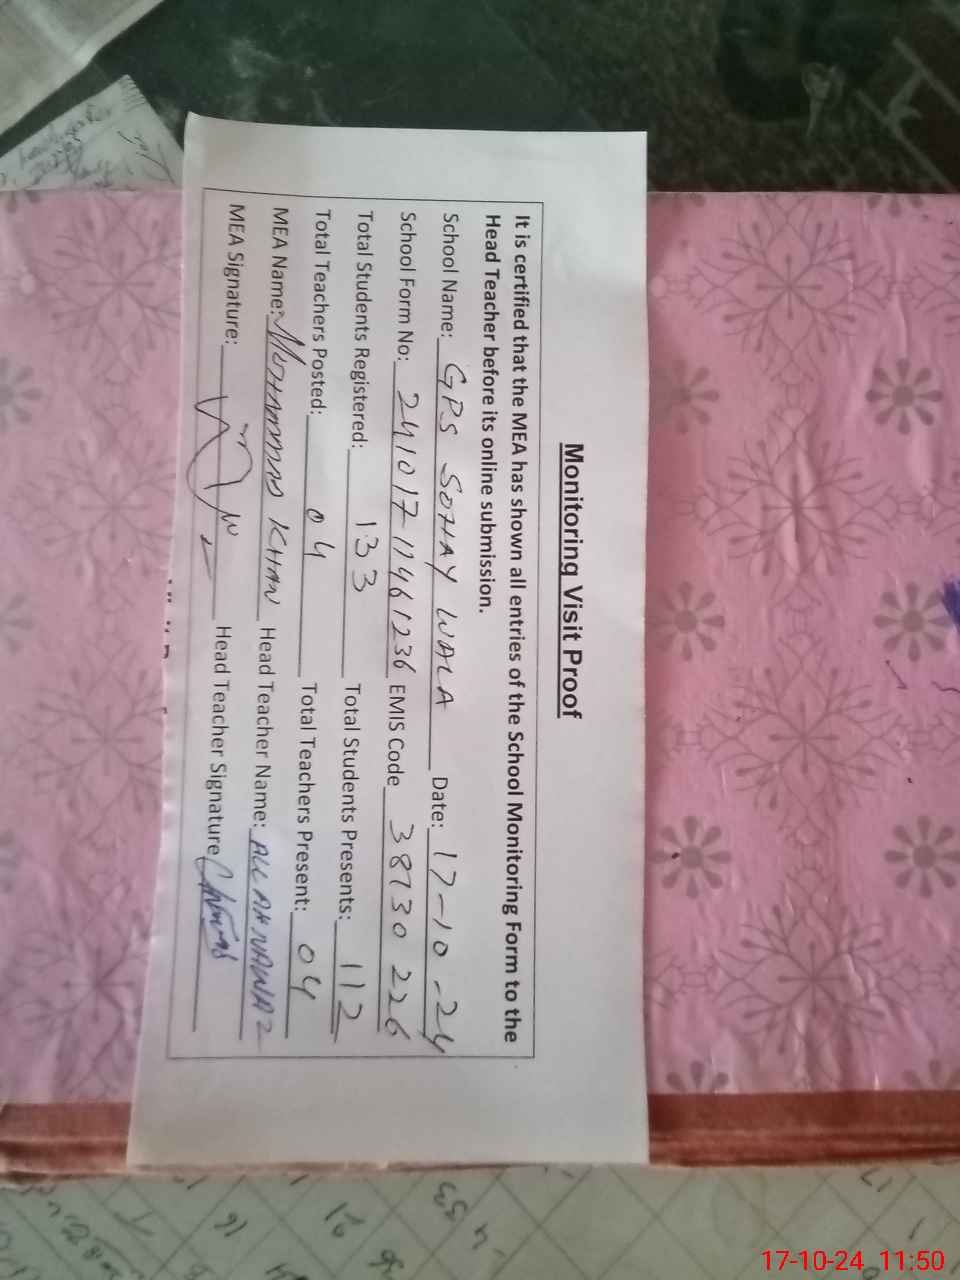 Monitoring Visit Proof
It is certified that the MEA has shown all entries of the School Monitoring Form to the
Head Teacher before its online submission.
School Name: GPS SOHAY WALA Date: 17-10-24
School Form No: 241017-11461236 EMIS Code 38730226
Total Students Registered: 133 Total Students Presents: 112
Total Teachers Posted: 04 Total Teachers Present: 04
MEA Name: MOHAMMAD KHAN Head Teacher Name: ALLAH NAWAZ
MEA Signature: Head Teacher Signature
17-10-24 11:50